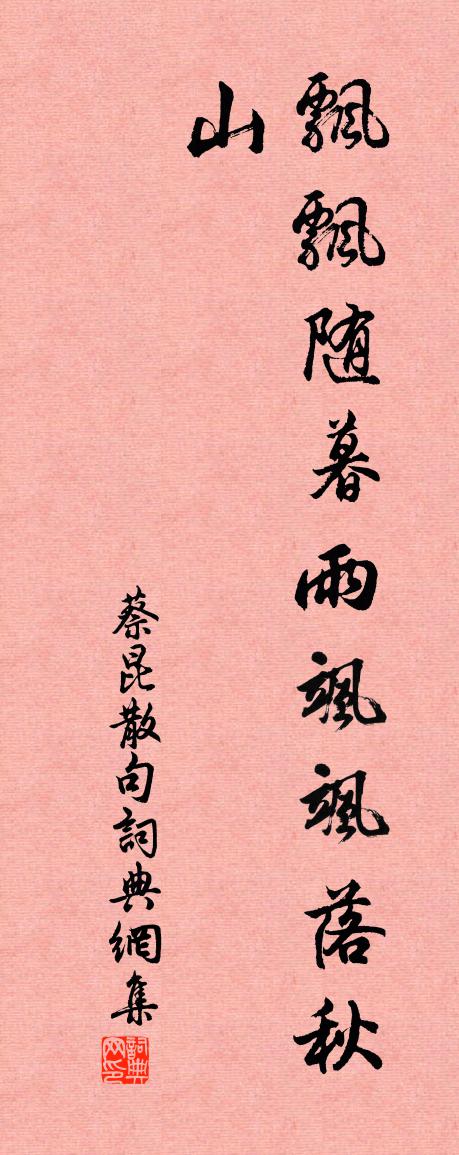 飄飄随暮雨颯颯落秋
山
蔡昆散句詞典網集
詞典网印